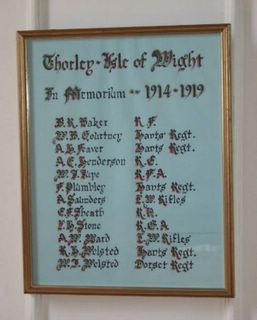 Thorley-Isle of Wight
In Memorium -- 1914-1919
B.R. Baker R.F.
W.B. Courtney Hants Regt.
A.H. Hants Regt.
A.E. Henderson R.E.
W.J. R.F.A.
F. Plumbley Hants Regt.
A Saunders I.W. Rifles
E.F. Sheath R.N.
F.H. Stone R.G.A
A.W. Ward I.W. Rifles
R.H. Welsted Hants Regt
W.J. Welsted Dorset Regt